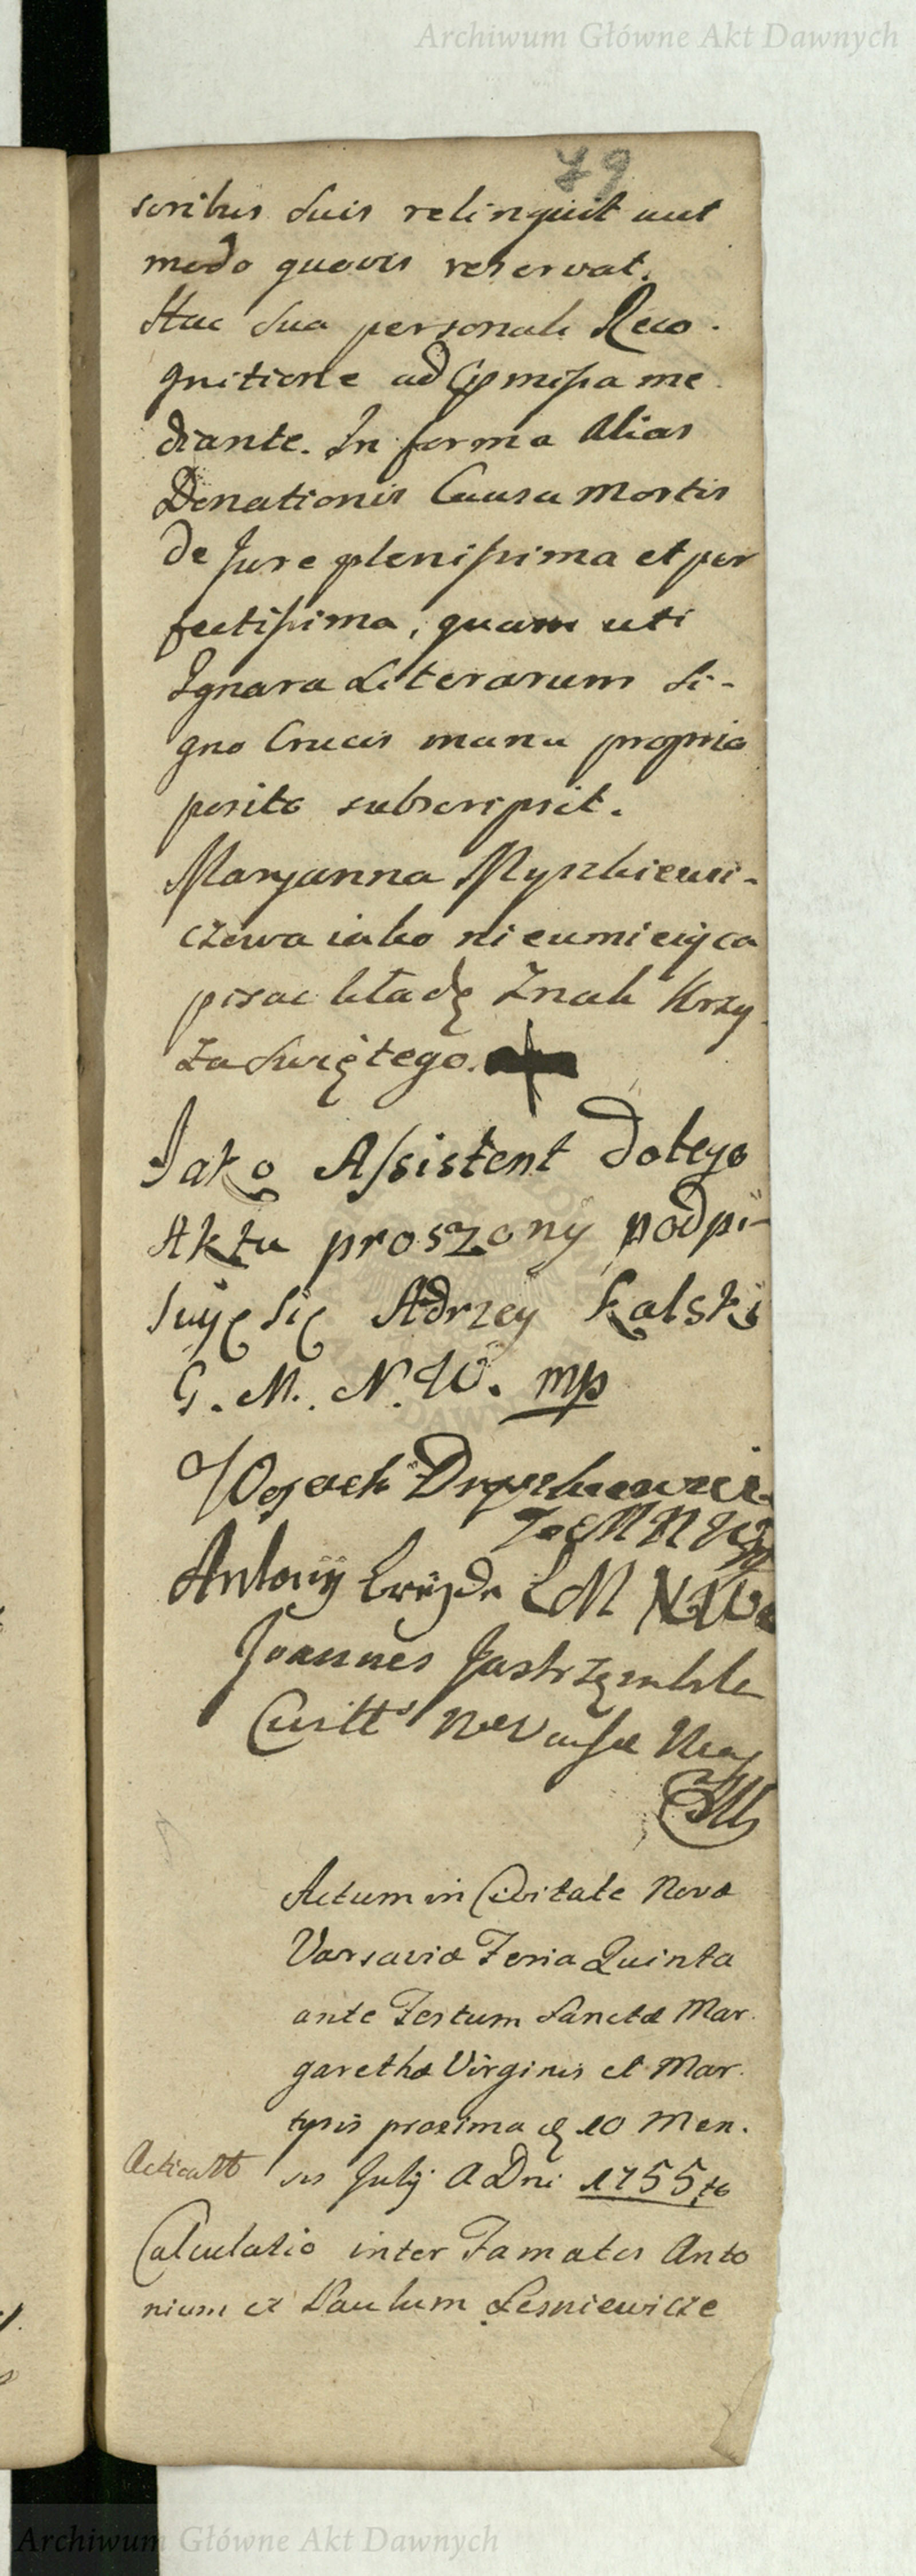 Archiwum Główne Akt Dawnych
79
soribus suis relinquit aut
modo quovis reservat.
Hac sua personali Reco-
gnitione ad præmissa me-
diante. In forma alias
Donationis Causa Mortis
de Jure plenissima et per
fectissima, quam uti
Ignara Literarum Si-
gno Crucis manu propria
posito subscripsit.
Maryanna Myszkiewi-
czowa iako nieumieiąca
pisac kładę Znak Krzy-
za Swiętego.
Jako Assistent dotego
Aktu proszony podpi-
suię się Adrzey Kalski
G. M. N. W. mp
Woyciech
MNW
Antoni MNW
Joannes Jastrzembsk
Actum in Civitate Nova
Varsavia Feria Quinta
ante Festum Sanctæ Mar-
garethæ Virginis et Mar-
tyris proxima 10 Men-
sis Julij A Dni 1755to
Acticatt
Calculatio inter Famatos Anto
nium et Paulum Lesniewicze
Archiwum Główne Akt Dawnych